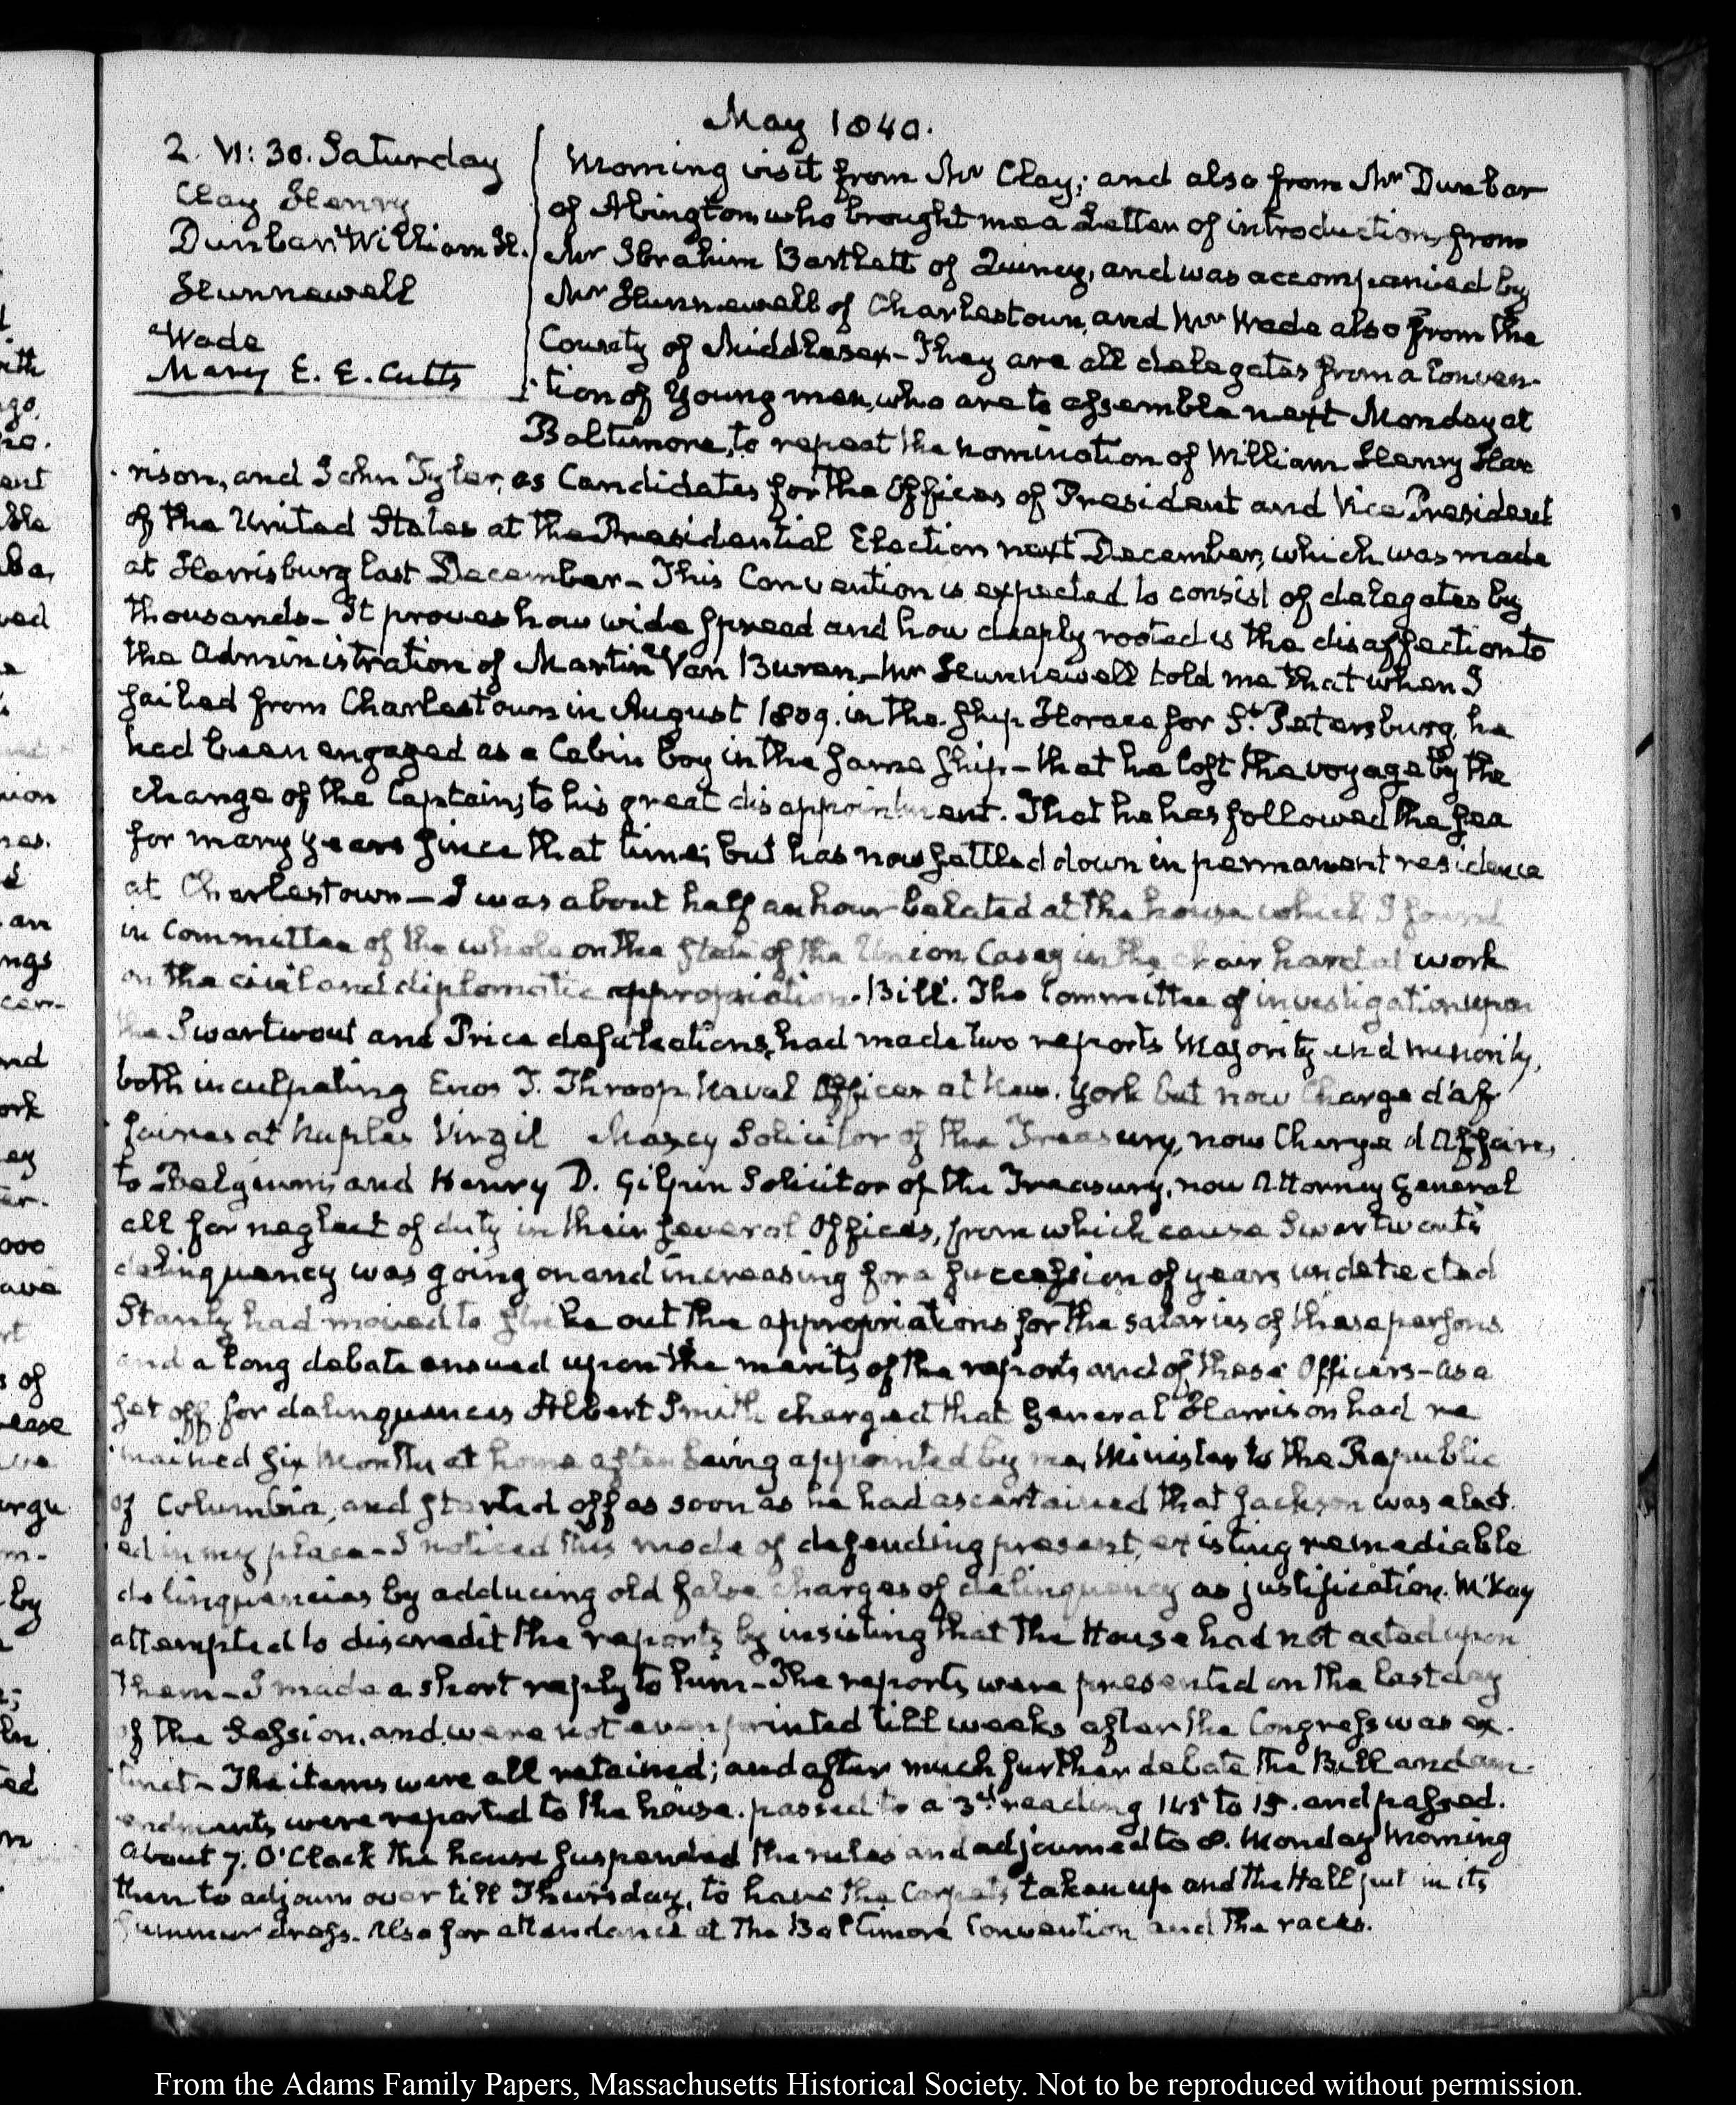 May 1840.
2. VI: 30. Saturday
Clay Henry
Dunbar William H.
Hunnewell
Wade
Mary E. E. Cutts
Morning visit from Mr Clay; and also from Mr Dunbar
of Abington who brought me a Letter of introduction from
Mr Ibrahim Bartlett of Quincy, and was accompanied by
Mr Hunnewell of Charlestown, and Mr Wade also from the
County of Middlesex — They are all delegates from a Conven-
tion of Young men, who are to assemble next Monday at
Baltimore, to repeat the nomination of William Henry Har
rison, and John Tyler, as Candidates for the Offices of President and Vice President
of the United States at the Presidential Election next December, which was made
at Harrisburg last December — This Convention is expected to consist of delegates by
thousands — It proves how wide spread and how deeply rooted is the disaffection to
the Administration of Martin Van Buren — Mr Hunnewell told me that when I
sailed from Charlestown in August 1809. in the Ship Horace for St. Petersburg, he
had been engaged as a Cabin boy in the same Ship — that he lost the voyage by the
change of the Captain, to his great disappointment. That he has followed the Sea
for many years since that time; but has now settled down in permanent residence
at Charlestown — I was about half an hour belated at the house which I found
in Committee of the whole on the State of the Union Casey in the chair hard at work
on the civil and diplomatic appropriation Bill. The Committee of investigation upon
the Swartwout and Price defalcations, had made two reports Majority and minority,
both inculpating Enos T. Throop Naval Officer at New. York but now Charge d'af
faires at Naples Virgil Maxcy Solicitor of the Treasury, now Charge d'Affaires
to Belgium, and Henry D. Gilpin Solicitor of the Treasury, now Attorney General
all for neglect of duty in their several Offices, from which cause Swartwout's
delinquency was going on and increasing for a succession of years undetected
Stanly had moved to strike out the appropriations for the salaries of these persons
and a long debate ensued upon the merits of the reports and of these Officers — as a
set off for delinquences Albert Smith charged that General Harrison had re
mained six Months at home after being appointed by me, Minister to the Republic
of Columbia, and started off as soon as he had ascertained that Jackson was elect-
ed in my place — I noticed this mode of defending present, existing remediable
delinquencies by adducing old false charges of delinquency as justification. McKay
attempted to discredit the reports by insisting that the House had not acted upon
them — I made a short reply to him — The reports were presented on the last day
of the Session, and were not even printed till weeks after the Congress was ex-
tinct — The items were all retained; and after much further debate the Bill and am-
endments were reported to the house. passed to a 3d reading 145 to 15. and passed.
About 7. O'Clock the house suspended the rules and adjourned to 8. Monday Morning
then to adjourn over till Thursday, to have the Carpets taken up and the Hall put in its
Summer dress. Also for attendance at the Baltimore Convention and the races.
From the Adams Family Papers, Massachusetts Historical Society. Not to be reproduced without permission.